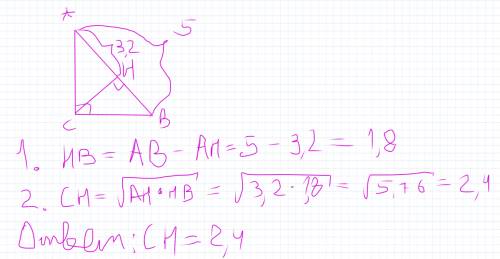 A
5
3,2
H
C
B
1. HB = AB - AH = 5 - 3,2 = 1,8
2. CH = √AH·HB = √3,2·1,8 = √5,76 = 2,4
Ответ: CH = 2,4